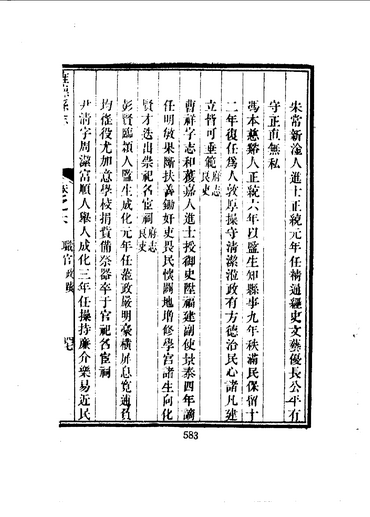 朱常新淦人進士正統元年任精通經史文藝優長公平有
守正直無私
馮本慈谿人正統六年以監生知縣事九年秩滿民保留十
二年復任爲人敦厚操守清潔涖政有方德洽民心諸凡建
立皆可垂範府志良吏
曹祥字志和獲嘉人進士授御史陞福建副使景泰四年謫
任明敏果斷扶善鋤奸吏畏民懷闢地增修學宮諸生向化
賢才迭出崇祀名宦祠府志良吏
彭賢臨潁人監生成化元年任蒞政嚴明豪橫屏息寬逋負
均徭役尤加意學校捐貲備祭器卒于官祀名宦祠
尹清字周瀾富順人舉人成化三年任操持廉介樂易近民
職官政蹟
583